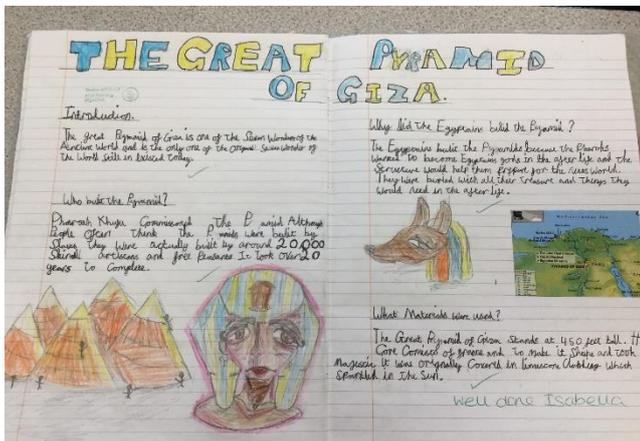 THE GREAT PYRAMID
OF GIZA.
Introduction.
The great Pyramid of Giza is one of the Seven Wonders of the
Ancient World and is the only one of the original Seven Wonder of
the World still in today.
Who built the Pyramid?
Pharoah Khufu Commissioned The P amid Although
People often think the P amids were built by
Slaves they were actually built by around 20,000
Skilled artisans and free It took over 20
years to Complete.
Why did the Egyptains build the Pyramid?
The Egyptains built the Pyramids because the Pharohs
wanted to become Egyptains gods in the after life and the
Structure would help them prepare for the next World.
They were buried with all their treasure and things they
would need in the after life.
What Materials were used?
The Great Pyramid of Gizza Stands at 450 feet tall. It
Core Consists of and to make it Shape and look
Majestic it was originally Covered in which
Sparkled in the Sun.
Well done Isabella